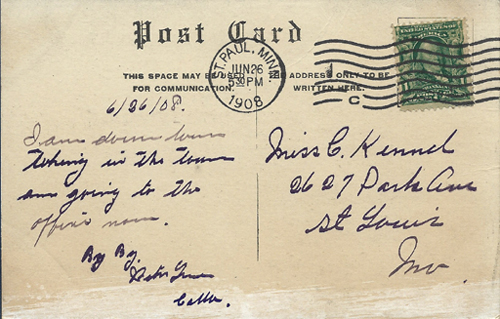 Post Card
THIS SPACE MAY BE USED
FOR COMMUNICATION.
THE ADDRESS ONLY TO BE
WRITTEN HERE.
ST. PAUL, MINN.
JUN 26
5 30 PM
1908
C
6/26/08.
I am down town
taking in the town
am going to the
office now.
By By.
Miss C. Kennel
2627 Park Ave
St Louis
Mo.